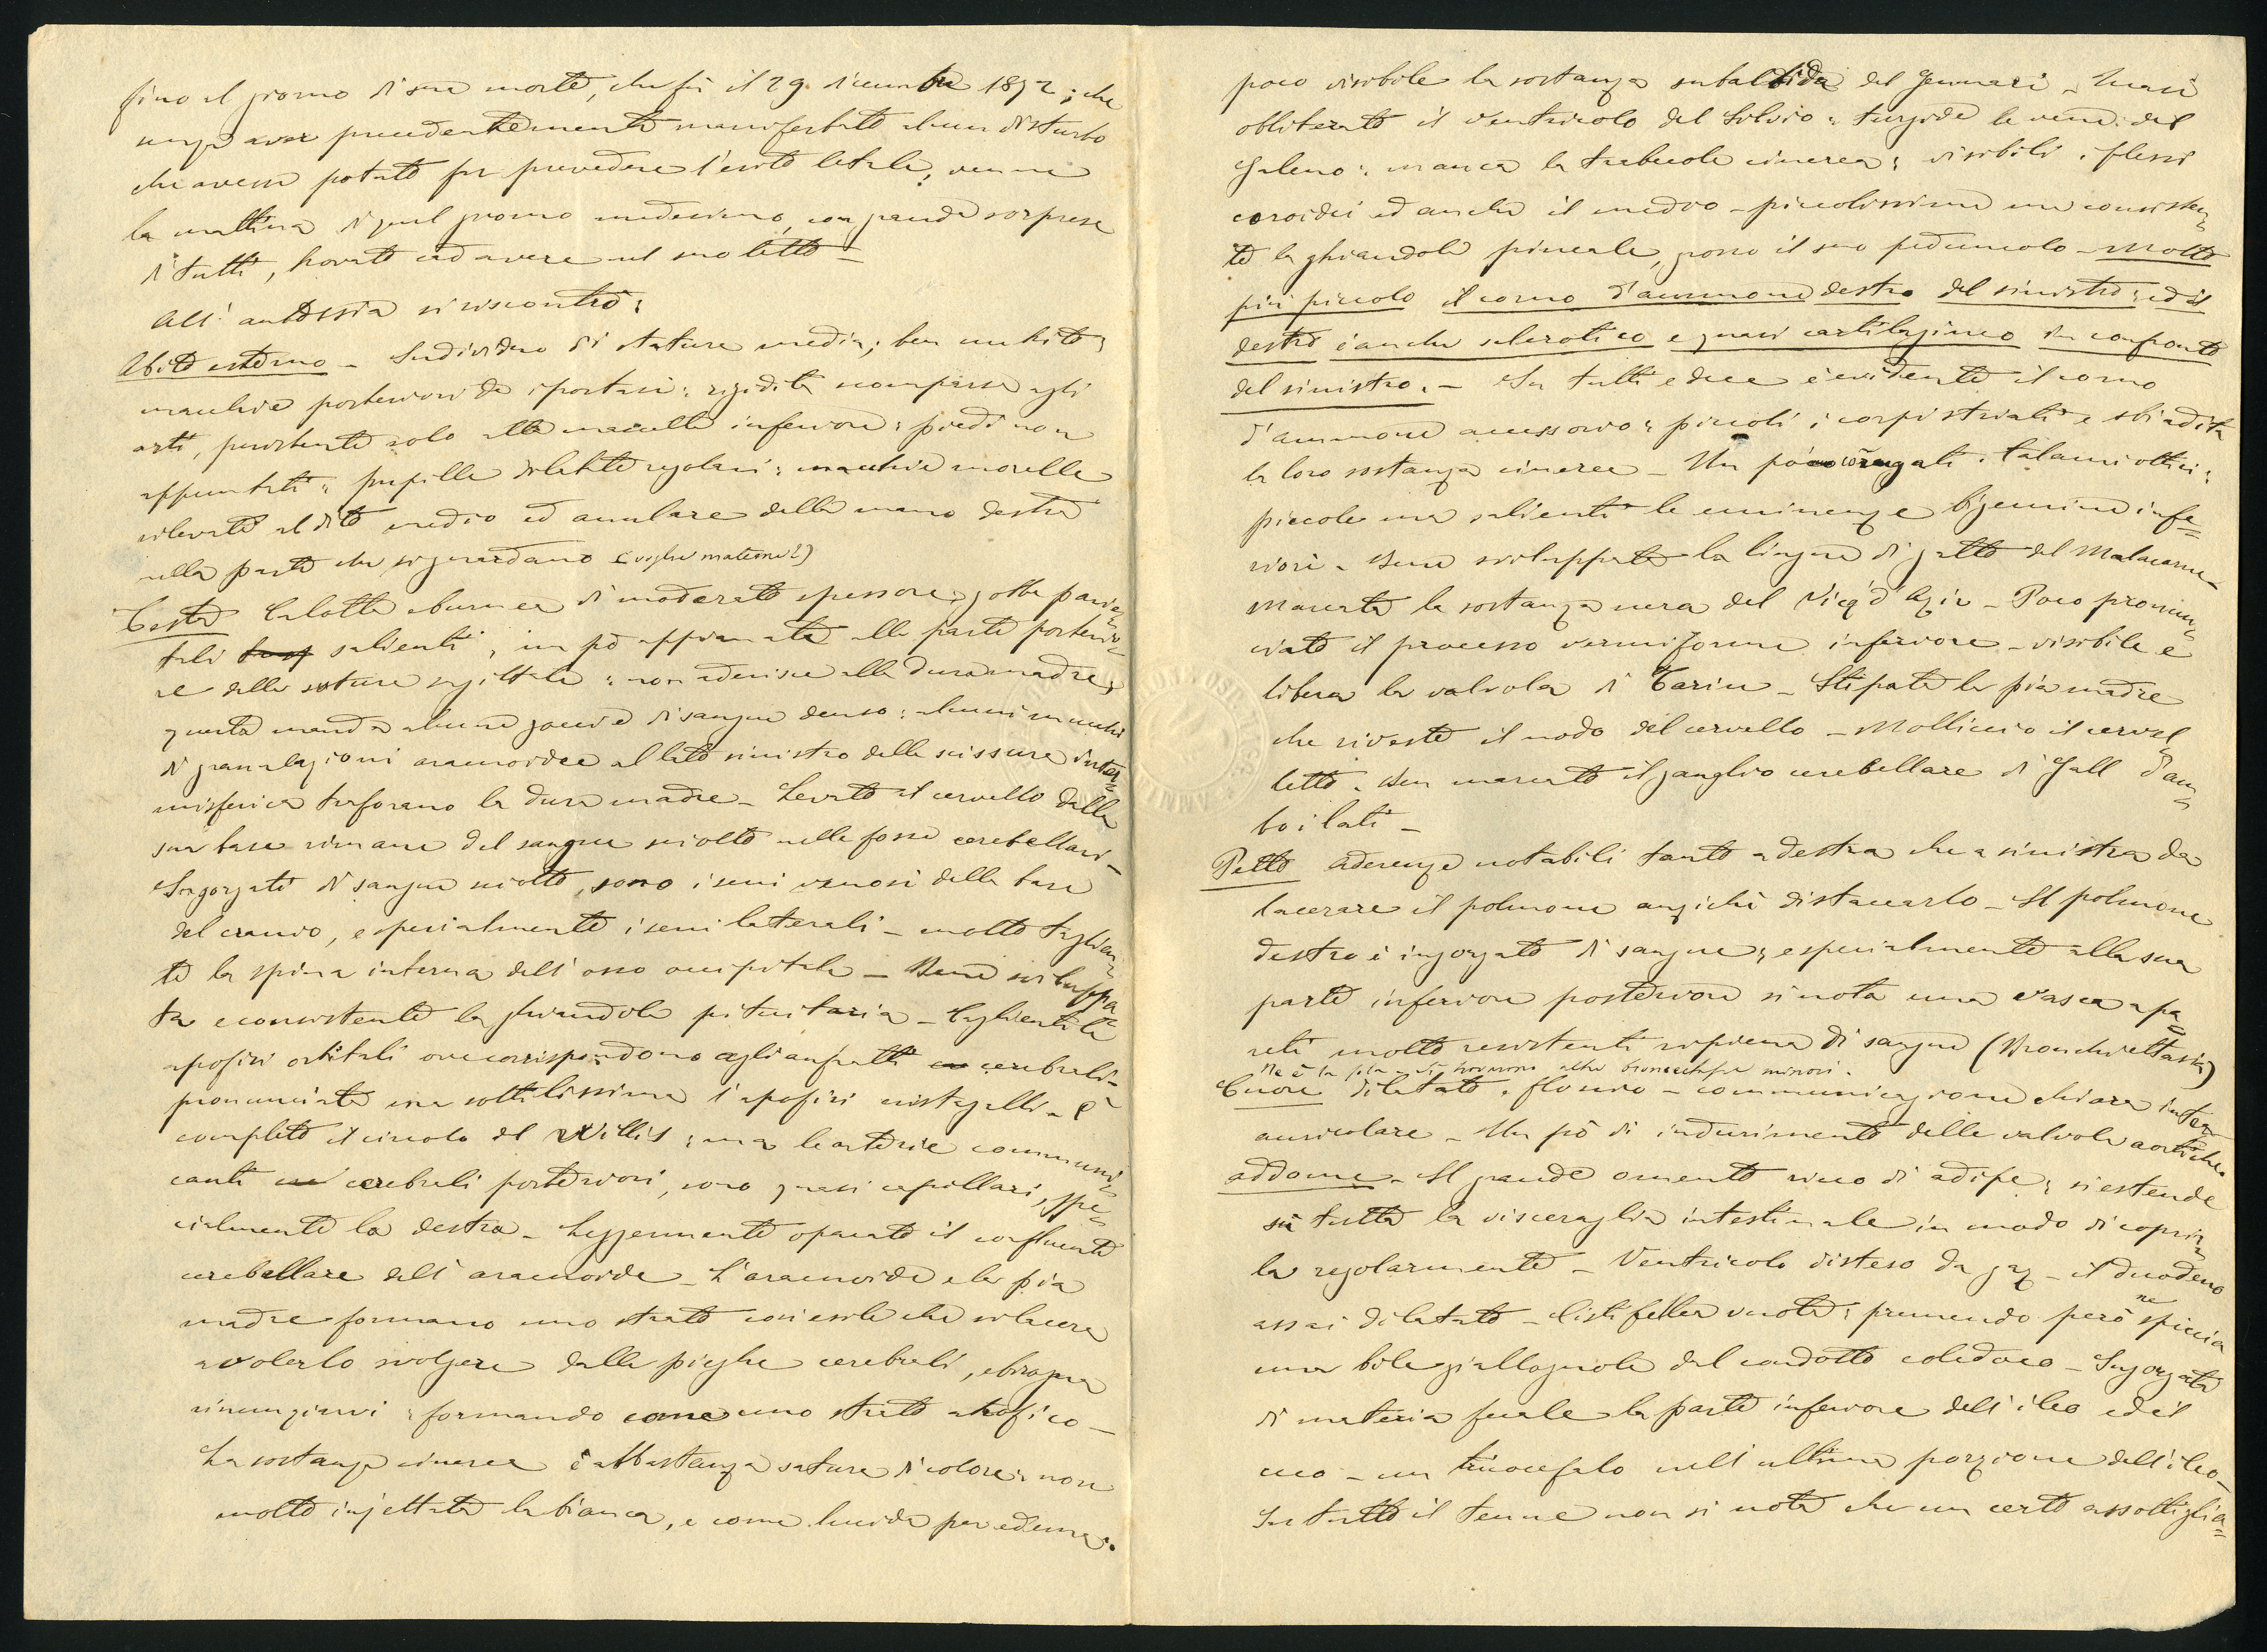 fino al giorno di sua morte, che fù il 29 dicembre 1892; che
senza aver precedentemente manifestato alcun disturbo
che avesse potuto far prevedere l'esito letale, venne
la mattina di quel giorno medesimo, con grande sorpresa
di tutti, trovato cadavere nel suo letto –
All' autossia si riscontrò:
Abito esterno – Individuo di statura media; ben nutrito;
macchie posteriori da ipostasi: rigidità scomparsa agli
arti, persistente solo alla mascella inferiore: piedi non
appuntati: pupille dilatate regolari: macchie morelle
rilevate al dito medio ed anulare della mano destra
nella parte che si guardano (voglie materne?)
Testa Calotta eburnea di moderato spessore, gobbe parie=
tali salienti, un pò appianata alla parte posterio=
re della sutura sagittale: non aderisce alla dura madre,
questa manda alcune goccie di sangue denso: alcuni mucchi
di granulazioni aracnoidee al lato sinistro della scissura inter=
misferica traforano la dura madre – Levato il cervello dalla
sua base rimane del sangue sciolto nelle fosse cerebellari –
Ingorgati di sangue sciolto, sono i seni venosi della base
del cranio, e specialmente i seni laterali – molto taglien=
te la spina interna dell' osso occipitale – Bene sviluppa=
ta e consistente la ghiandola pituitaria – Taglienti le
apofisi orbitali ove corrispondono agli anfratti cerebrali –
pronunciata ma sottilissima l'apofisi cristagalli – È
completo il circolo del Willis; ma le arterie communi=
canti cerebrali posteriori, sono quasi capillari, spe=
cialmente la destra – Leggermente opacato il confluente
cerebellare dell' aracnoide – L'aracnoide e la pia
madre formano uno strato così esile che si lacera
a volerlo svolgere dalle pieghe cerebrali, e bisogna
rinunziarvi: formando come uno strato atrofico –
La sostanza cinerea è abbastanza satura di colore: non
molto injettata la bianca, e come lucida per edema:
poco visibile la sostanza subalbida del Gennari – Quasi
obliterato il ventricolo del Silvio: turgide le vene del
Galeno: manca la trabecola cinerea: visibili i plessi
coroidei ed anche il medio – piccolissima ma consisten=
te la ghiandola pineale, grosso il suo peduncolo – Molto
più piccolo il corno d'ammone destro del sinistro: ed il
destro è anche sclerotico e quasi cartilagineo in confronto
del sinistro. – In tutti e due è evidente il corno
d'ammone accessorio: piccoli i corpi striati e sbiadita
la loro sostanza cinerea – Un pò corrugati i talami ottici:
piccole ma salienti le eminenze bigemine infe=
riori – Bene sviluppata la lingua di gatto del Malacarne –
Marcata la sostanza nera del Vicq d'Azir – Poco pronun=
ciato il processo vermiforme inferiore – visibile e
libera la valvola di Tarin – Stipata la pia madre
che riveste il nodo del cervello – Molliccio il cervel=
letto – Ben marcato il ganglio cerebellare di Gall d'am=
bo i lati –
Petto Aderenze notabili tanto a destra che a sinistra da
lacerare il polmone anzichè distaccarlo – Il polmone
destro è ingorgato di sangue, e specialmente alla sua
parte inferiore posteriore si nota una vasca a pa=
reti molto resistenti ripiena di sangue (Bronchiettasia)
Ne è la sola – si trovano altre bronchiettasie minori.
Cuore dilatato, floscio – communicazione chiara inter=
auricolare – Un pò di indurimento delle valvole aortiche.
addome – Il grande omento ricco di adipe, si estende
sù tutta la visceraglia intestinale in modo di coprir=
la regolarmente – Ventricolo disteso da gaz – il duodeno
assai dilatato – Cisti fellea vuota: premendo però ne spiccia
una bile giallognola dal condotto coledoco – Ingorgata
di materia fecale la parte inferiore dell' ileo ed il
ceco – un tricocefalo nell' ultima porzione dell' ileo –
In tutto il tenue non si nota che un certo assottiglia=